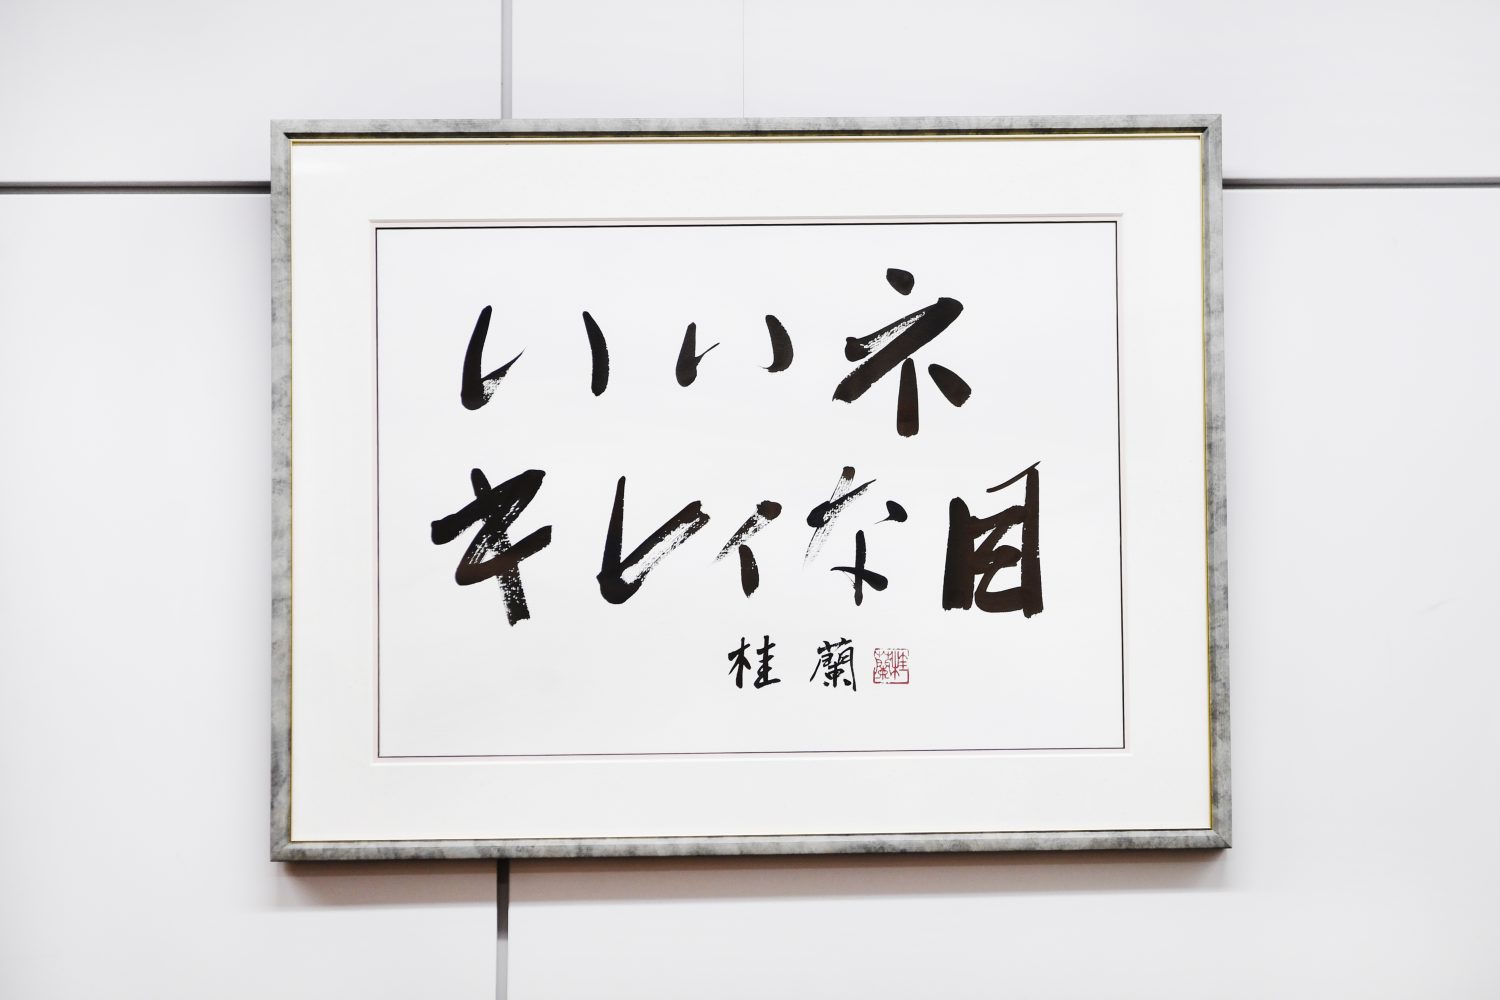 いいネ
キレイな目
桂蘭
桂蘭